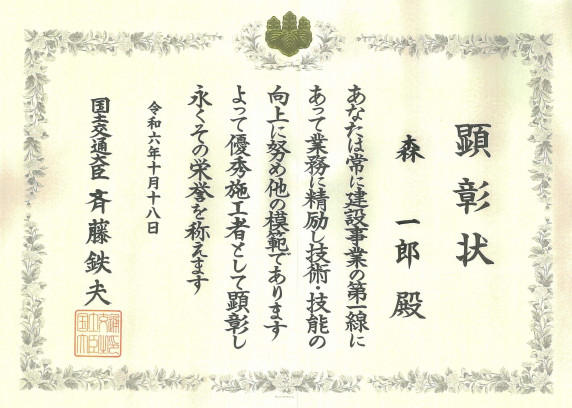 顕彰状
森 一郎 殿
あなたは常に建設事業の第一線に
あって業務に精励し技術・技能の
向上に努め他の模範であります
よって優秀施工者として顕彰し
永くその栄誉を称えます
令和六年十月十八日
国土交通大臣 斉藤鉄夫